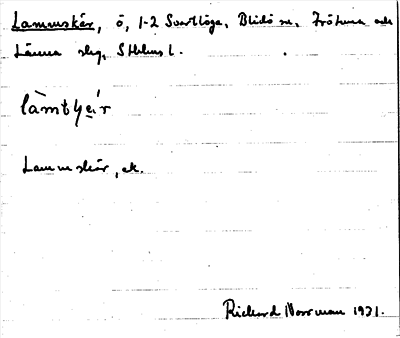 Lammskär, ö, 1-2 Svartlöga, Blidö sn, Frötuna och
Länna skg, Sthlms l.
Lammskär, ek.
Richard Norrman 1931.